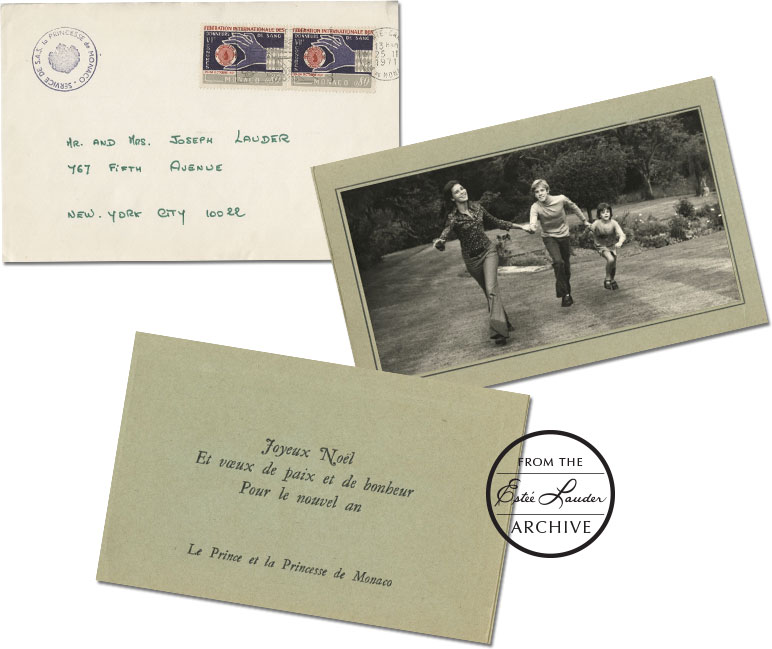 SERVICE DE S.A.S. la PRINCESSE de MONACO
FÉDÉRATION INTERNATIONALE DES
DONNEURS DE SANG
MONACO
FÉDÉRATION INTERNATIONALE DES
DONNEURS DE SANG
MONACO
1971
MR. AND MRS. JOSEPH LAUDER
767 FIFTH AVENUE
NEW-YORK CITY 10022
Joyeux Noël
Et vœux de paix et de bonheur
Pour le nouvel an
Le Prince et la Princesse de Monaco
FROM THE
Estée Lauder
ARCHIVE